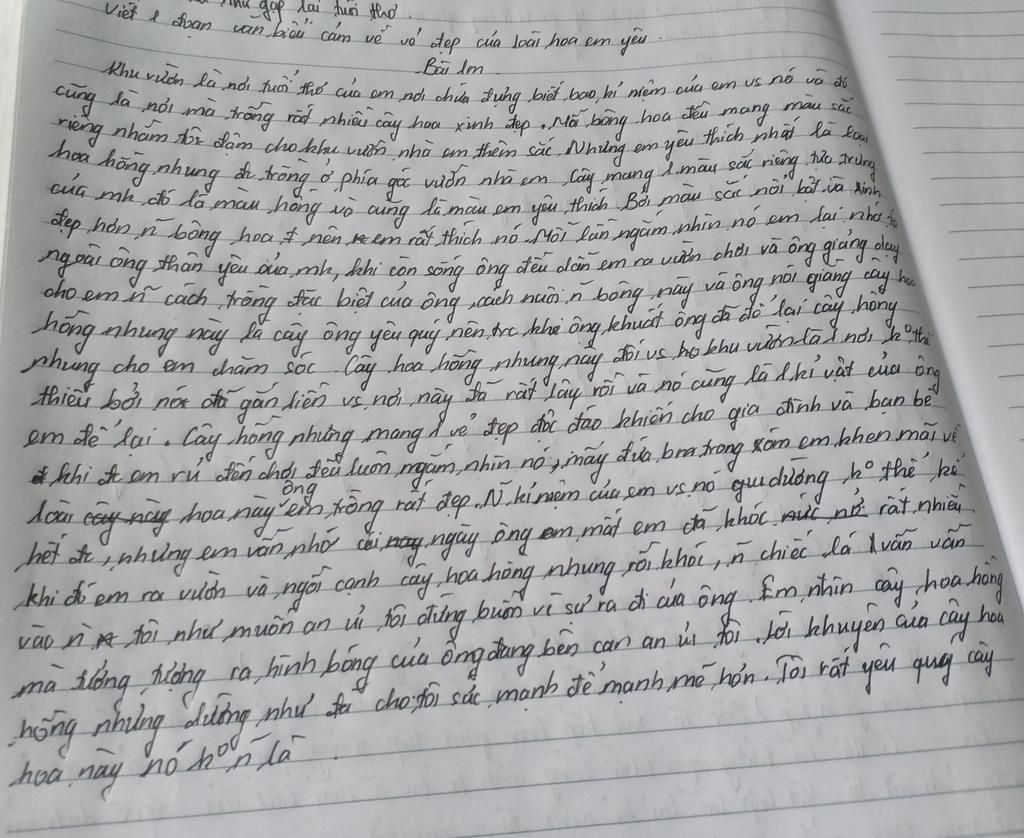 gặp lại tuổi thơ.
Viết 1 đoạn văn biểu cảm về vẻ đẹp của loài hoa em yêu.
Bài lm
Khu vườn là nơi tuổi thơ của em, nơi chứa đựng biết bao kỉ niệm của em vs nó và đó
cũng là nơi mà trồng rất nhiều cây hoa xinh đẹp. Mỗi bông hoa đều mang màu sắc
riêng nhằm tô đậm cho khu vườn nhà em thêm sắc. Nhưng em yêu thích nhất là loài
hoa hồng nhung đc trồng ở phía góc vườn nhà em. Cây mang 1 màu sắc riêng tựa trưng
của mk, đó là màu hồng và cũng là màu em yêu thích. Bởi màu sắc nổi bật và xinh
đẹp hơn n~ bông hoa # nên em rất thích nó. Mỗi lần ngắm nhìn nó em lại nhớ
ngoài ông thân yêu của mk, khi còn sống ông đều dẫn em ra vườn chơi và ông giảng dạy
cho em n~ cách trồng đặc biệt của ông, cách nuôi n~ bông này và ông nói giảng cây hoa
hồng nhung này là cây ông yêu quý nên trc khi ông khuất ông đã để lại cây hồng
nhung cho em chăm sóc. Cây hoa hồng nhung này đối vs khu vườn là 1 nơi k° thể
thiếu bởi nó đã gắn liền vs nơi này đã rất lâu rồi và nó cũng là 1 kỉ vật của ông
em để lại. Cây hồng nhung mang 1 vẻ đẹp độc đáo khiến cho gia đình và bạn bè
khi đc em rủ đến chơi đều luôn ngắm nhìn nó, mấy đứa bna trong xóm em khen mãi về
loài cây này hoa này ông em trồng rất đẹp. N~ kỉ niệm của em vs nó qu dường k° thể kể
hết đc, nhưng em vẫn nhớ ngày ông em mất em đã khóc nức nở rất nhiều
khi đó em ra vườn và ngồi cạnh cây hoa hồng nhung rồi khóc, n~ chiếc lá vẫn vẫn
vào n~ tôi như muốn an ủi tôi đừng buồn vì sự ra đi của ông. Em nhìn cây hoa hồng
mà tưởng tượng ra hình bóng của ông đang bên cạn an ủi tôi. Lời khuyên của cây hoa
hồng nhung dường như đã cho tôi sức mạnh để mạnh mẽ hơn. Tôi rất yêu quý cây
hoa này nó k° n~ là